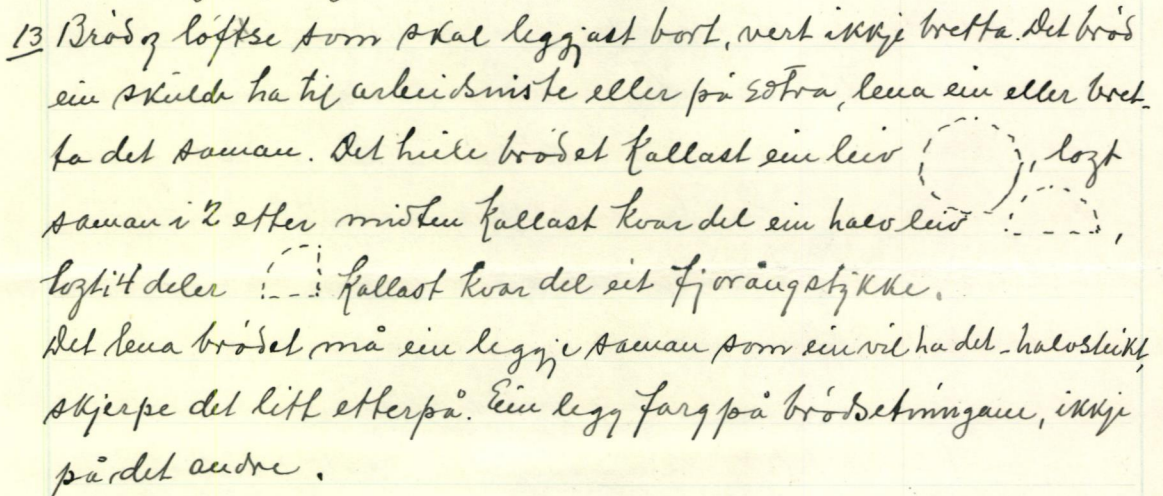 13 Brød og løftse som skal leggjast bort, vert ikkje bretta. Det brød
ein skulde ha til arbeidsniste eller på sætra, lena ein eller bret-
ta det saman. Det heile brødet kallast ein leiv , lagt
saman i 2 etter midten kallast kvar del ein halvleiv ,
lagt i 4 deler kallast kvar del eit fjorångstykke.
Det lena brødet må ein leggje saman som ein vil ha det - halvsteikt,
skjerpe det litt etterpå. Ein legg farg på brødsetningane, ikkje
på det andre.